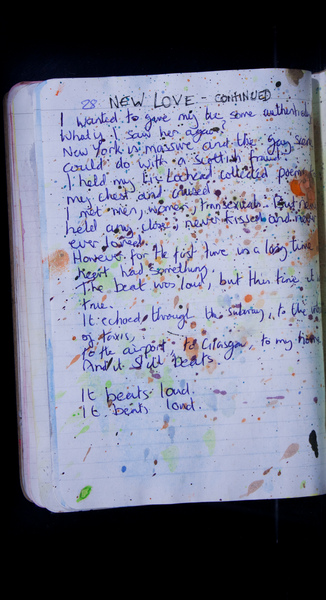 28 NEW LOVE - CONTINUED
I wanted to give my lie some authenticity
What if I saw her again?
New York is massive and the gay scene
could do with a Scottish fraud.
I held my Liz Lochead collected poems
my chest and cruised.
I met men, women, transexuals. But
held any close, never kissed and never
ever
However for the first time in a long time
heart had something,
The beat was low, but this time it
true.
It echoed through the subway, to the
of taxis,
to the airport, to Glasgow, to my home
And it still beats
It beats loud.
It beats loud.